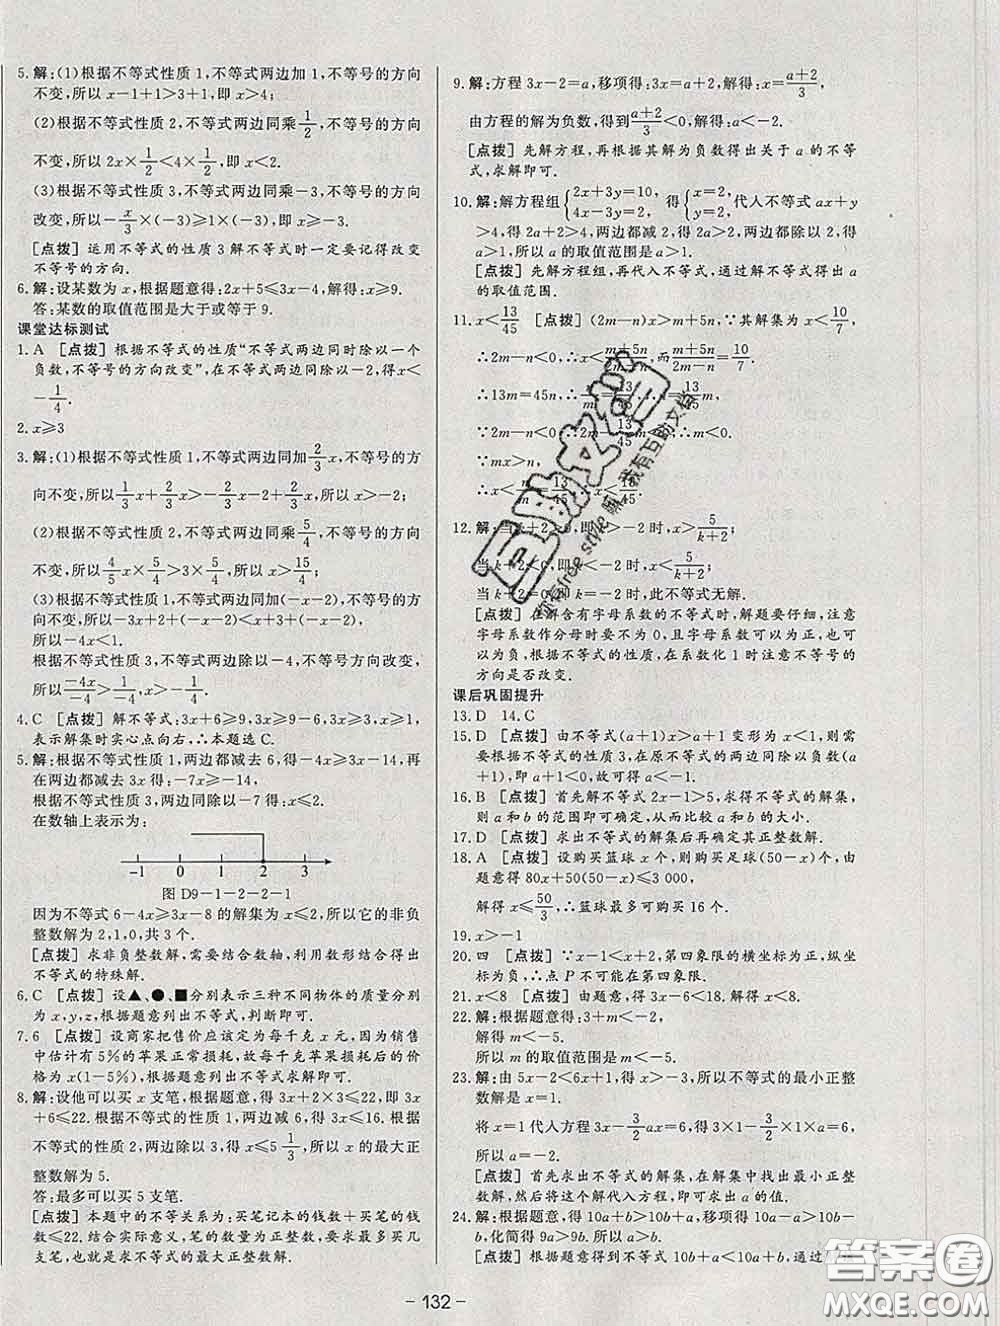 5. 解:(1)根据不等式性质 1,不等式两边加 1,不等号的方向
不变,所以 x-1+1>3+1,即 x>4;
(2)根据不等式性质 2,不等式两边同乘 1/2,不等号的方向
不变,所以 2x×1/2<4×1/2,即 x<2.
(3)根据不等式性质 3,不等式两边同乘-3,不等号的方向
改变,所以-x/3×(-3)≥1×(-3),即 x≥-3.
[点拨] 运用不等式的性质 3 解不等式时一定要记得改变
不等号的方向.
6. 解:设某数为 x,根据题意得:2x+5≤3x-4,解得:x≥9.
答:某数的取值范围是大于或等于 9.
课堂达标测试
1. A [点拨] 根据不等式的性质“不等式两边同时除以一个
负数,不等号的方向改变”,在不等式两边同除以-2,得 x<
-1/4.
2. x≥3
3. 解:(1)根据不等式性质 1,不等式两边同加 2/3x,不等号的方
向不变,所以 1/3x+2/3x>-2/3x-2+2/3x,所以 x>-2;
(2)根据不等式性质 2,不等式两边同乘 5/4,不等号的方向
不变,所以 4/5x×5/4>3×5/4,所以 x>15/4;
(3)根据不等式性质 1,不等式两边同加(-x-2),不等号方
向不变,所以-3x+2+(-x-2)<x+3+(-x-2),
所以-4x<1.
根据不等式性质 3,不等式两边除以-4,不等号方向改变,
所以 -4x/-4>1/-4,x>-1/4.
4. C [点拨] 解不等式:3x+6≥9,3x≥9-6,3x≥3,x≥1,
表示解集时实心点向右,∴本题选 C.
5. 解:根据不等式性质 1,两边都减去 6,得-4x≥3x-14,再
在两边都减去 3x 得:-7x≥-14,
根据不等式性质 3,两边同除以-7 得:x≤2.
在数轴上表示为:
-1 0 1 2 3
图 D9-1-2-2-1
因为不等式 6-4x≥3x-8 的解集为 x≤2,所以它的非负
整数解为 2,1,0,共 3 个.
[点拨] 求非负整数解,需结合数轴,利用数形结合得出
不等式的特殊解.
6. C [点拨] 设▲、●、■分别表示三种不同物体的质量分别
为 x,y,z,根据题意列出不等式,判断即可.
7. 6 [点拨] 设商家把售价应该定为每千克 x 元,因为销售
中估计有 5%的苹果正常损耗,故每千克苹果损耗后的价
格为 x(1-5%),根据题意列出不等式求解即可.
8. 解:设他可以买 x 支笔,根据题意,得 3x+2×3≤22,即 3x
+6≤22. 根据不等式性质 1,两边减 6,得 3x≤16. 根据
不等式的性质 2,两边除以 3,得 x≤5 1/3,所以 x 的最大正
整数解为 5.
答:最多可以买 5 支笔.
[点拨] 本题中的不等关系为:买笔记本的钱数+买笔的钱数
≤22. 结合实际意义,笔的数量为正整数,故要求最多买几
支笔,就是求不等式的最大正整数解.
9. 解:方程 3x-2=a,移项得:3x=a+2,解得:x=a+2/3,
由方程的解为负数,得到 a+2/3<0,解得:a<-2.
[点拨] 先解方程,再根据其解为负数得出关于 a 的不等
式,求解即可.
10. 解:解方程组{2x+3y=10, 4x-3y=2, 得{x=2, y=2,代入不等式 ax+y
>4,得 2a+2>4,两边都减 2,得 2a>2,两边都除以 2,得
a>1,所以 a 的取值范围是 a>1.
[点拨] 先解方程组,再代入不等式,通过解不等式得出 a
的取值范围.
11. x<13/45 [点拨] (2m-n)x>m+5n,∵其解集为 x<10/7,
∴2m-n<0,∴x<m+5n/2m-n,而m+5n/2m-n=10/7.
∴13m=45n,
∵2m-n<0,
∵mx>n,
∴x<n/m
12. 解:当 k+2>0,即 k>-2 时,x>5/k+2;
当 k+2<0,即 k<-2 时,x<5/k+2;
当 k+2=0,即 k=-2 时,此不等式无解.
[点拨] 在解含有字母系数的不等式时,解题要仔细,注意
字母系数作分母时要不为 0,且字母系数可以为正,也可
以为负,根据不等式的性质,在系数化 1 时注意不等号的
方向是否改变.
课后巩固提升
13. D 14. C
15. D [点拨] 由不等式(a+1)x>a+1 变形为 x<1,则需
要根据不等式的性质 3,在原不等式的两边同时除以负数(a
+1),即 a+1<0,所以 a<-1.
16. B [点拨] 首先解不等式 2x-1>5,求得不等式的解集,
则 a 和 b 的范围即可确定,从而比较 a 和 b 的大小.
17. D [点拨] 求出不等式的解集后再确定其正整数解.
18. A [点拨] 设购买篮球 x 个,则购买足球(50-x)个,由
题意得 80x+50(50-x)≤3 000,
解得 x≤50/3,∴篮球最多可购买 16 个.
19. x>-1
20. 四 [点拨] ∵x-1<x+2,第四象限的横坐标为正,纵坐
标为负,∴点 P 不可能在第四象限.
21. x<8 [点拨] 由题意,得 3x-6<18. 解得 x<8.
22. 解:根据题意得:3+m<-2,
解得 m<-5.
所以 m 的取值范围是 m<-5.
23. 解:由 5x-2<6x+1,得 x>-3,所以不等式的最小正整
数解是 x=1.
将 x=1 代入方程 3x-3/2ax=6,得 3×1-3/2×1×a=6,
所以 a=-2.
[点拨] 首先求出不等式的解集,在解集中找出最小正整
数解,然后把这个解代入方程,即可求出 a 的值.
24. 解:根据题意,得 10a+b>10b+a,移项得 10a-a>10b-
b,化简得 9a>9b. 所以 a>b.
[点拨] 根据题意得到不等式 10b+a<10a+b,通过
- 132 -
答案圈
MXQE.COM